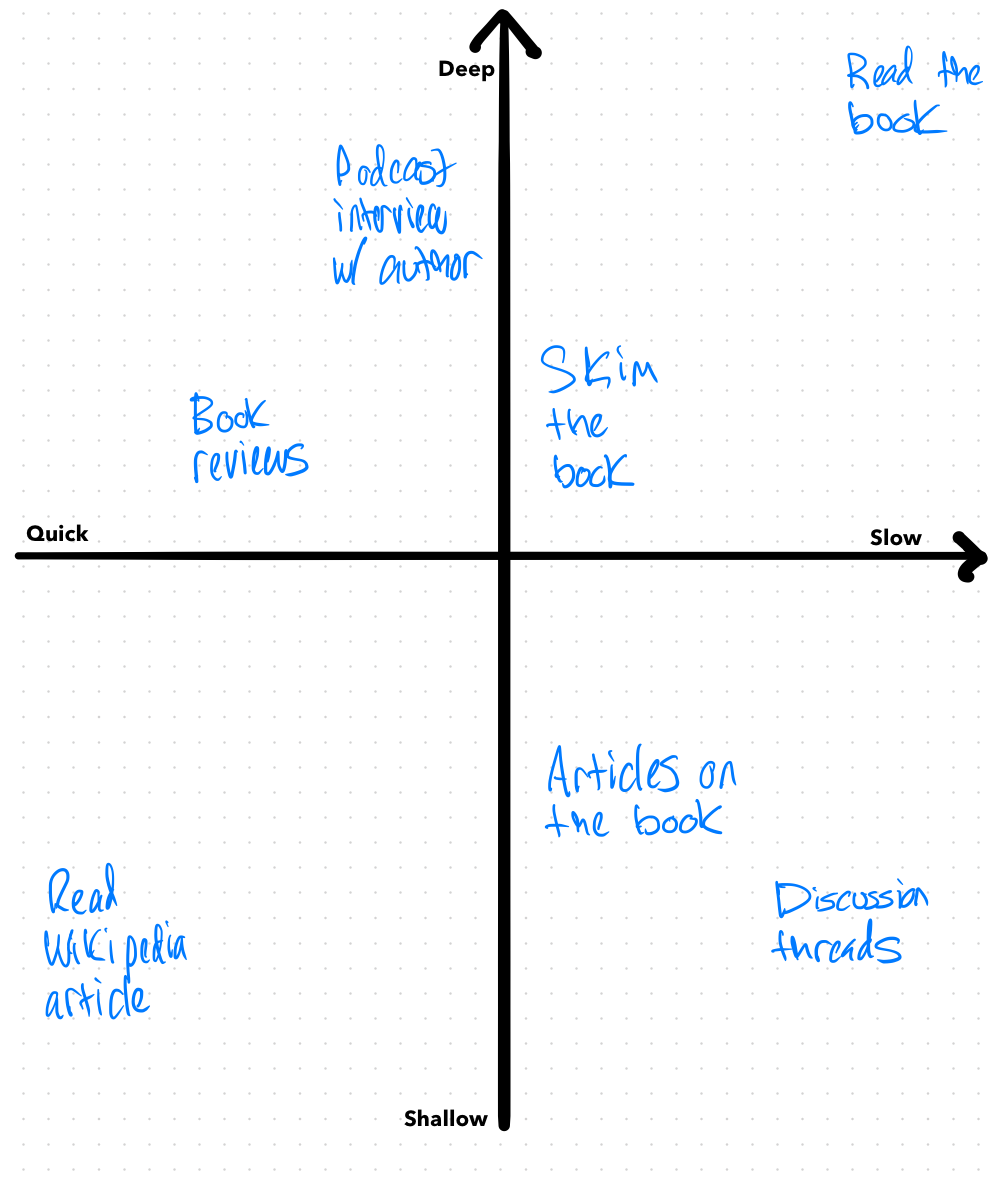 Deep
Read the
book
Podcast
interview
w/ author
Skim
the
book
Book
reviews
Quick
Slow
Articles on
the book
Read
Wikipedia
article
Discussion
threads
Shallow